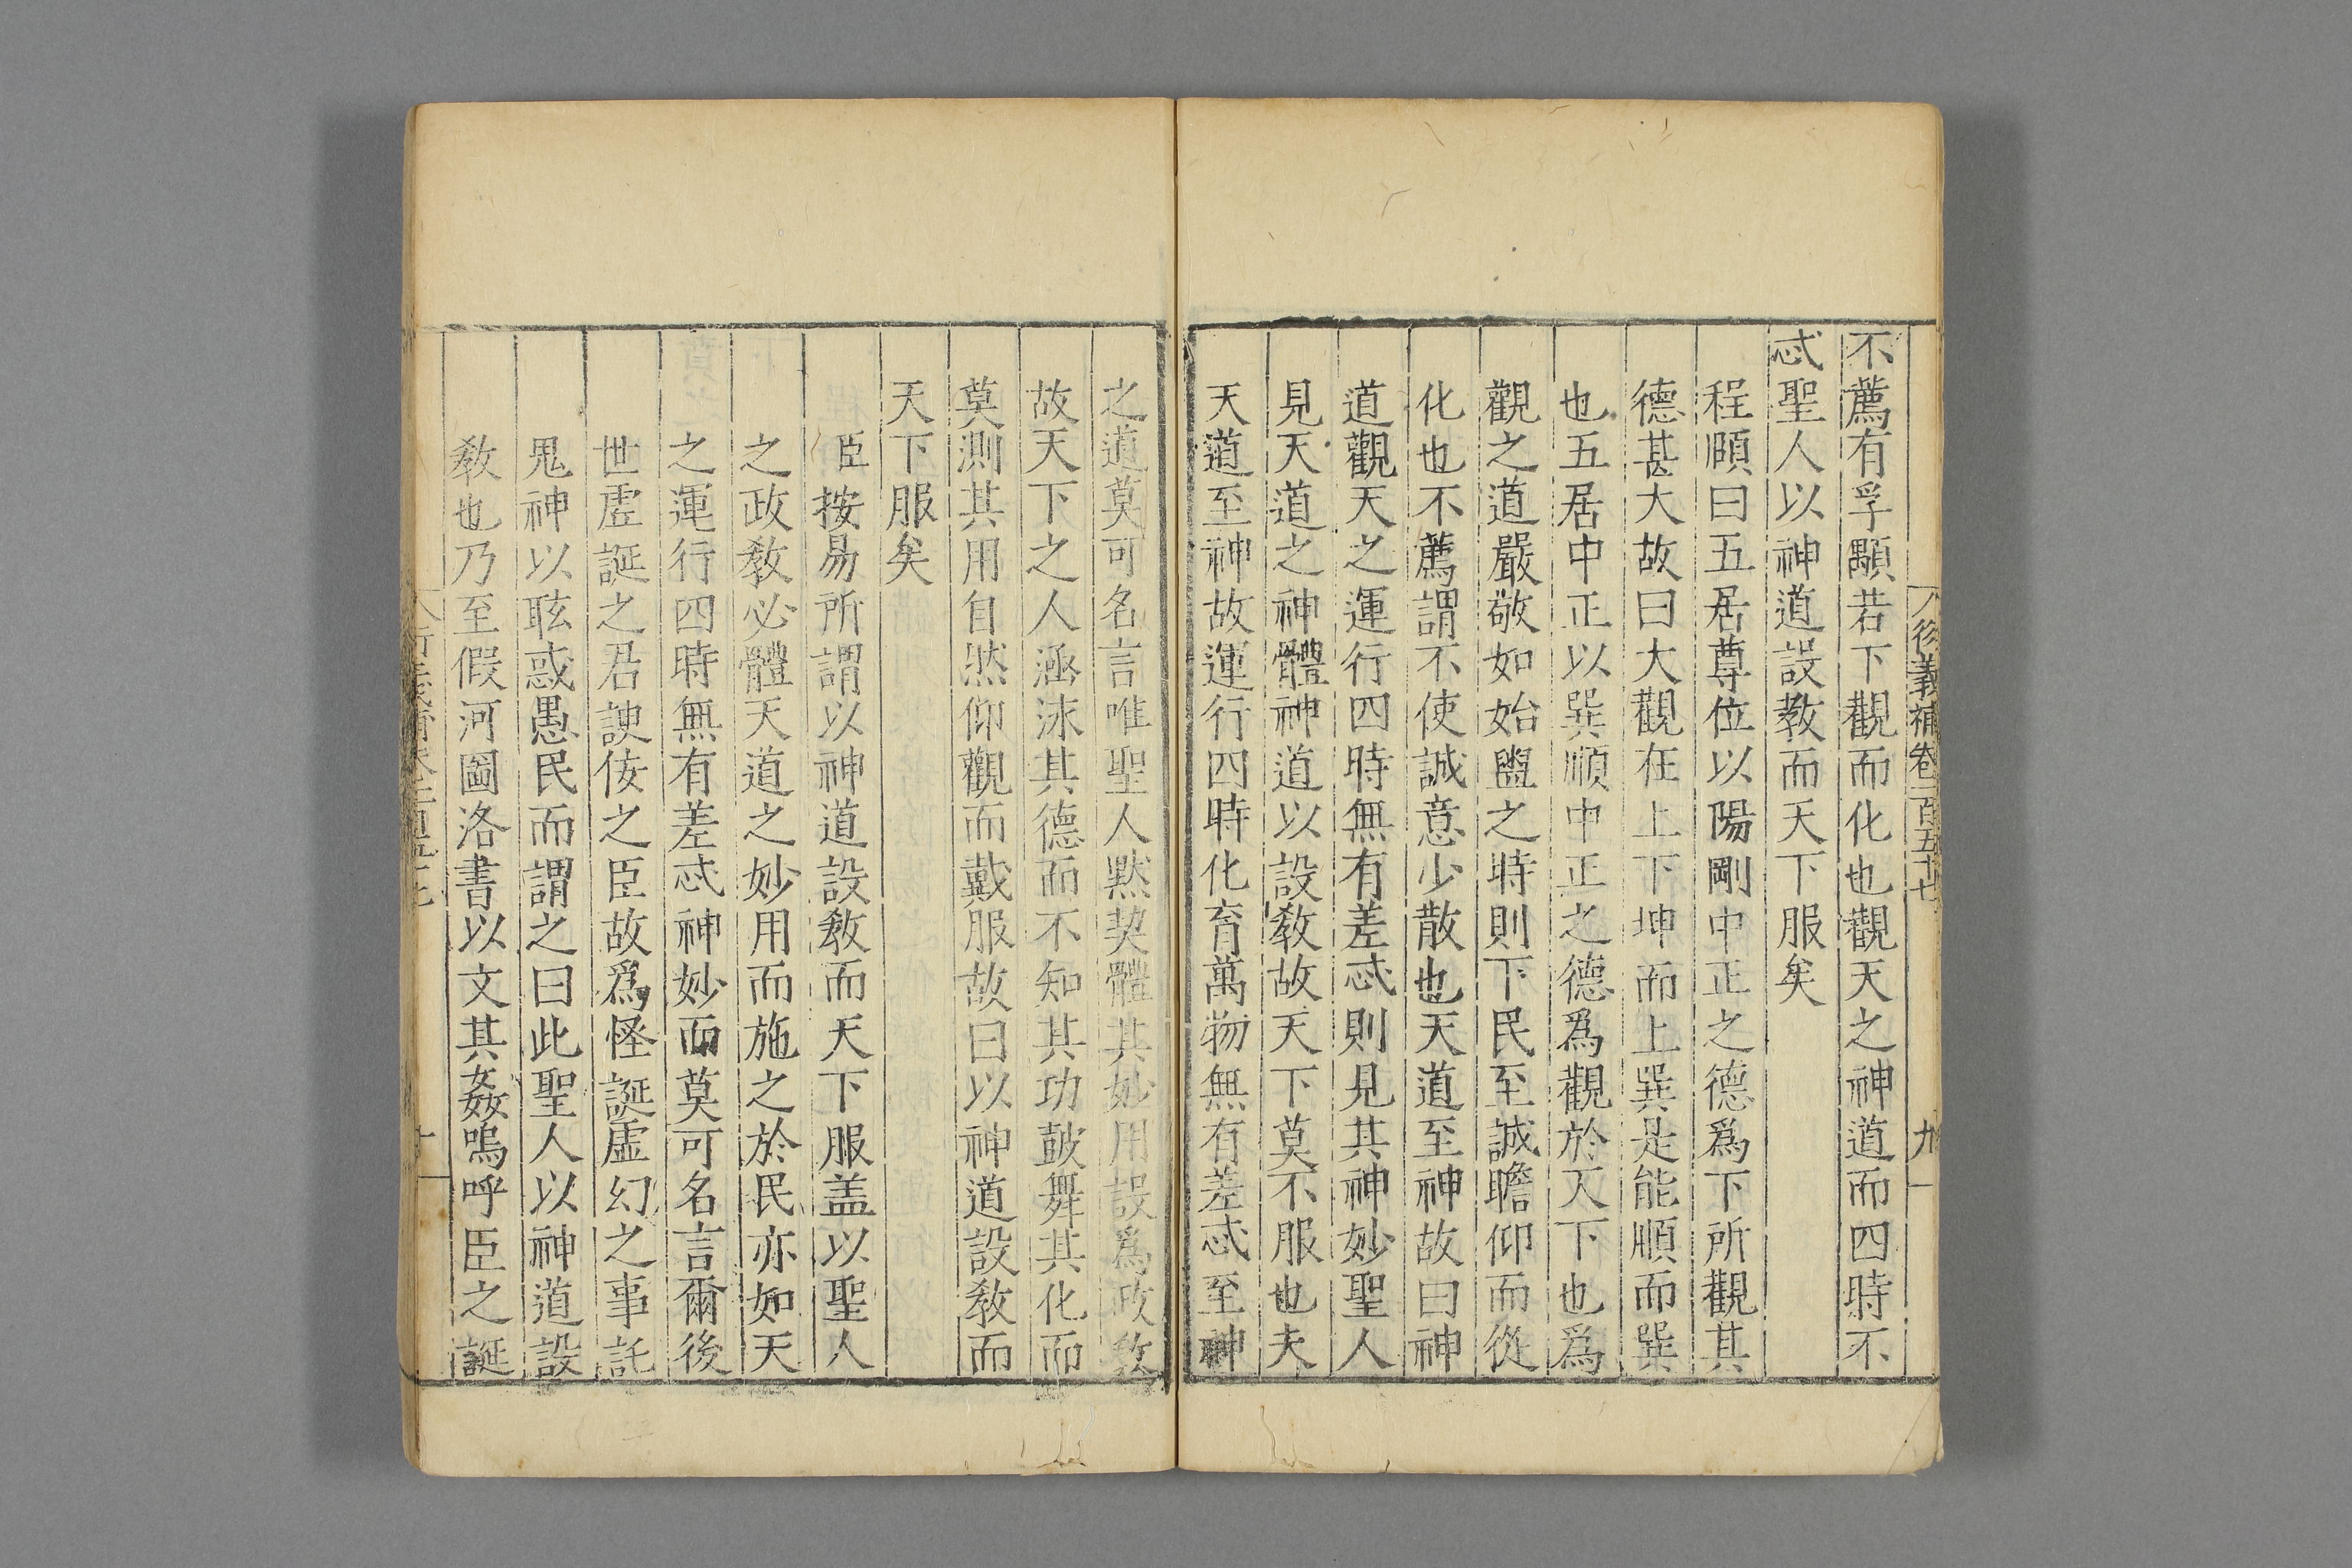 不薦有孚顒若下觀而化也觀天之神道而四時不
忒聖人以神道設教而天下服矣
程頤曰五居尊位以陽剛中正之德爲下所觀其
德甚大故曰大觀在上下坤而上巽是能順而巽
也五居中正以巽順中正之德爲觀於天下也爲
觀之道嚴敬如始盥之時則下民至誠瞻仰而從
化也不薦謂不使誠意少散也天道至神故曰神
道觀天之運行四時無有差忒則見其神妙聖人
見天道之神體神道以設教故天下莫不服也夫
天道至神故運行四時化育萬物無有差忒至神
之道莫可名言唯聖人黙契體其妙用設爲政教
故天下之人涵泳其德而不知其功鼓舞其化而
莫測其用自然仰觀而戴服故曰以神道設教而
天下服矣
臣按易所謂以神道設教而天下服盖以聖人
之政教必體天道之妙用而施之於民亦如天
之運行四時無有差忒神妙而莫可名言爾後
世虛誕之君諛佞之臣故爲怪誕虛幻之事託
鬼神以眩惑愚民而謂之曰此聖人以神道設
教也乃至假河圖洛書以文其姦嗚呼臣之誕